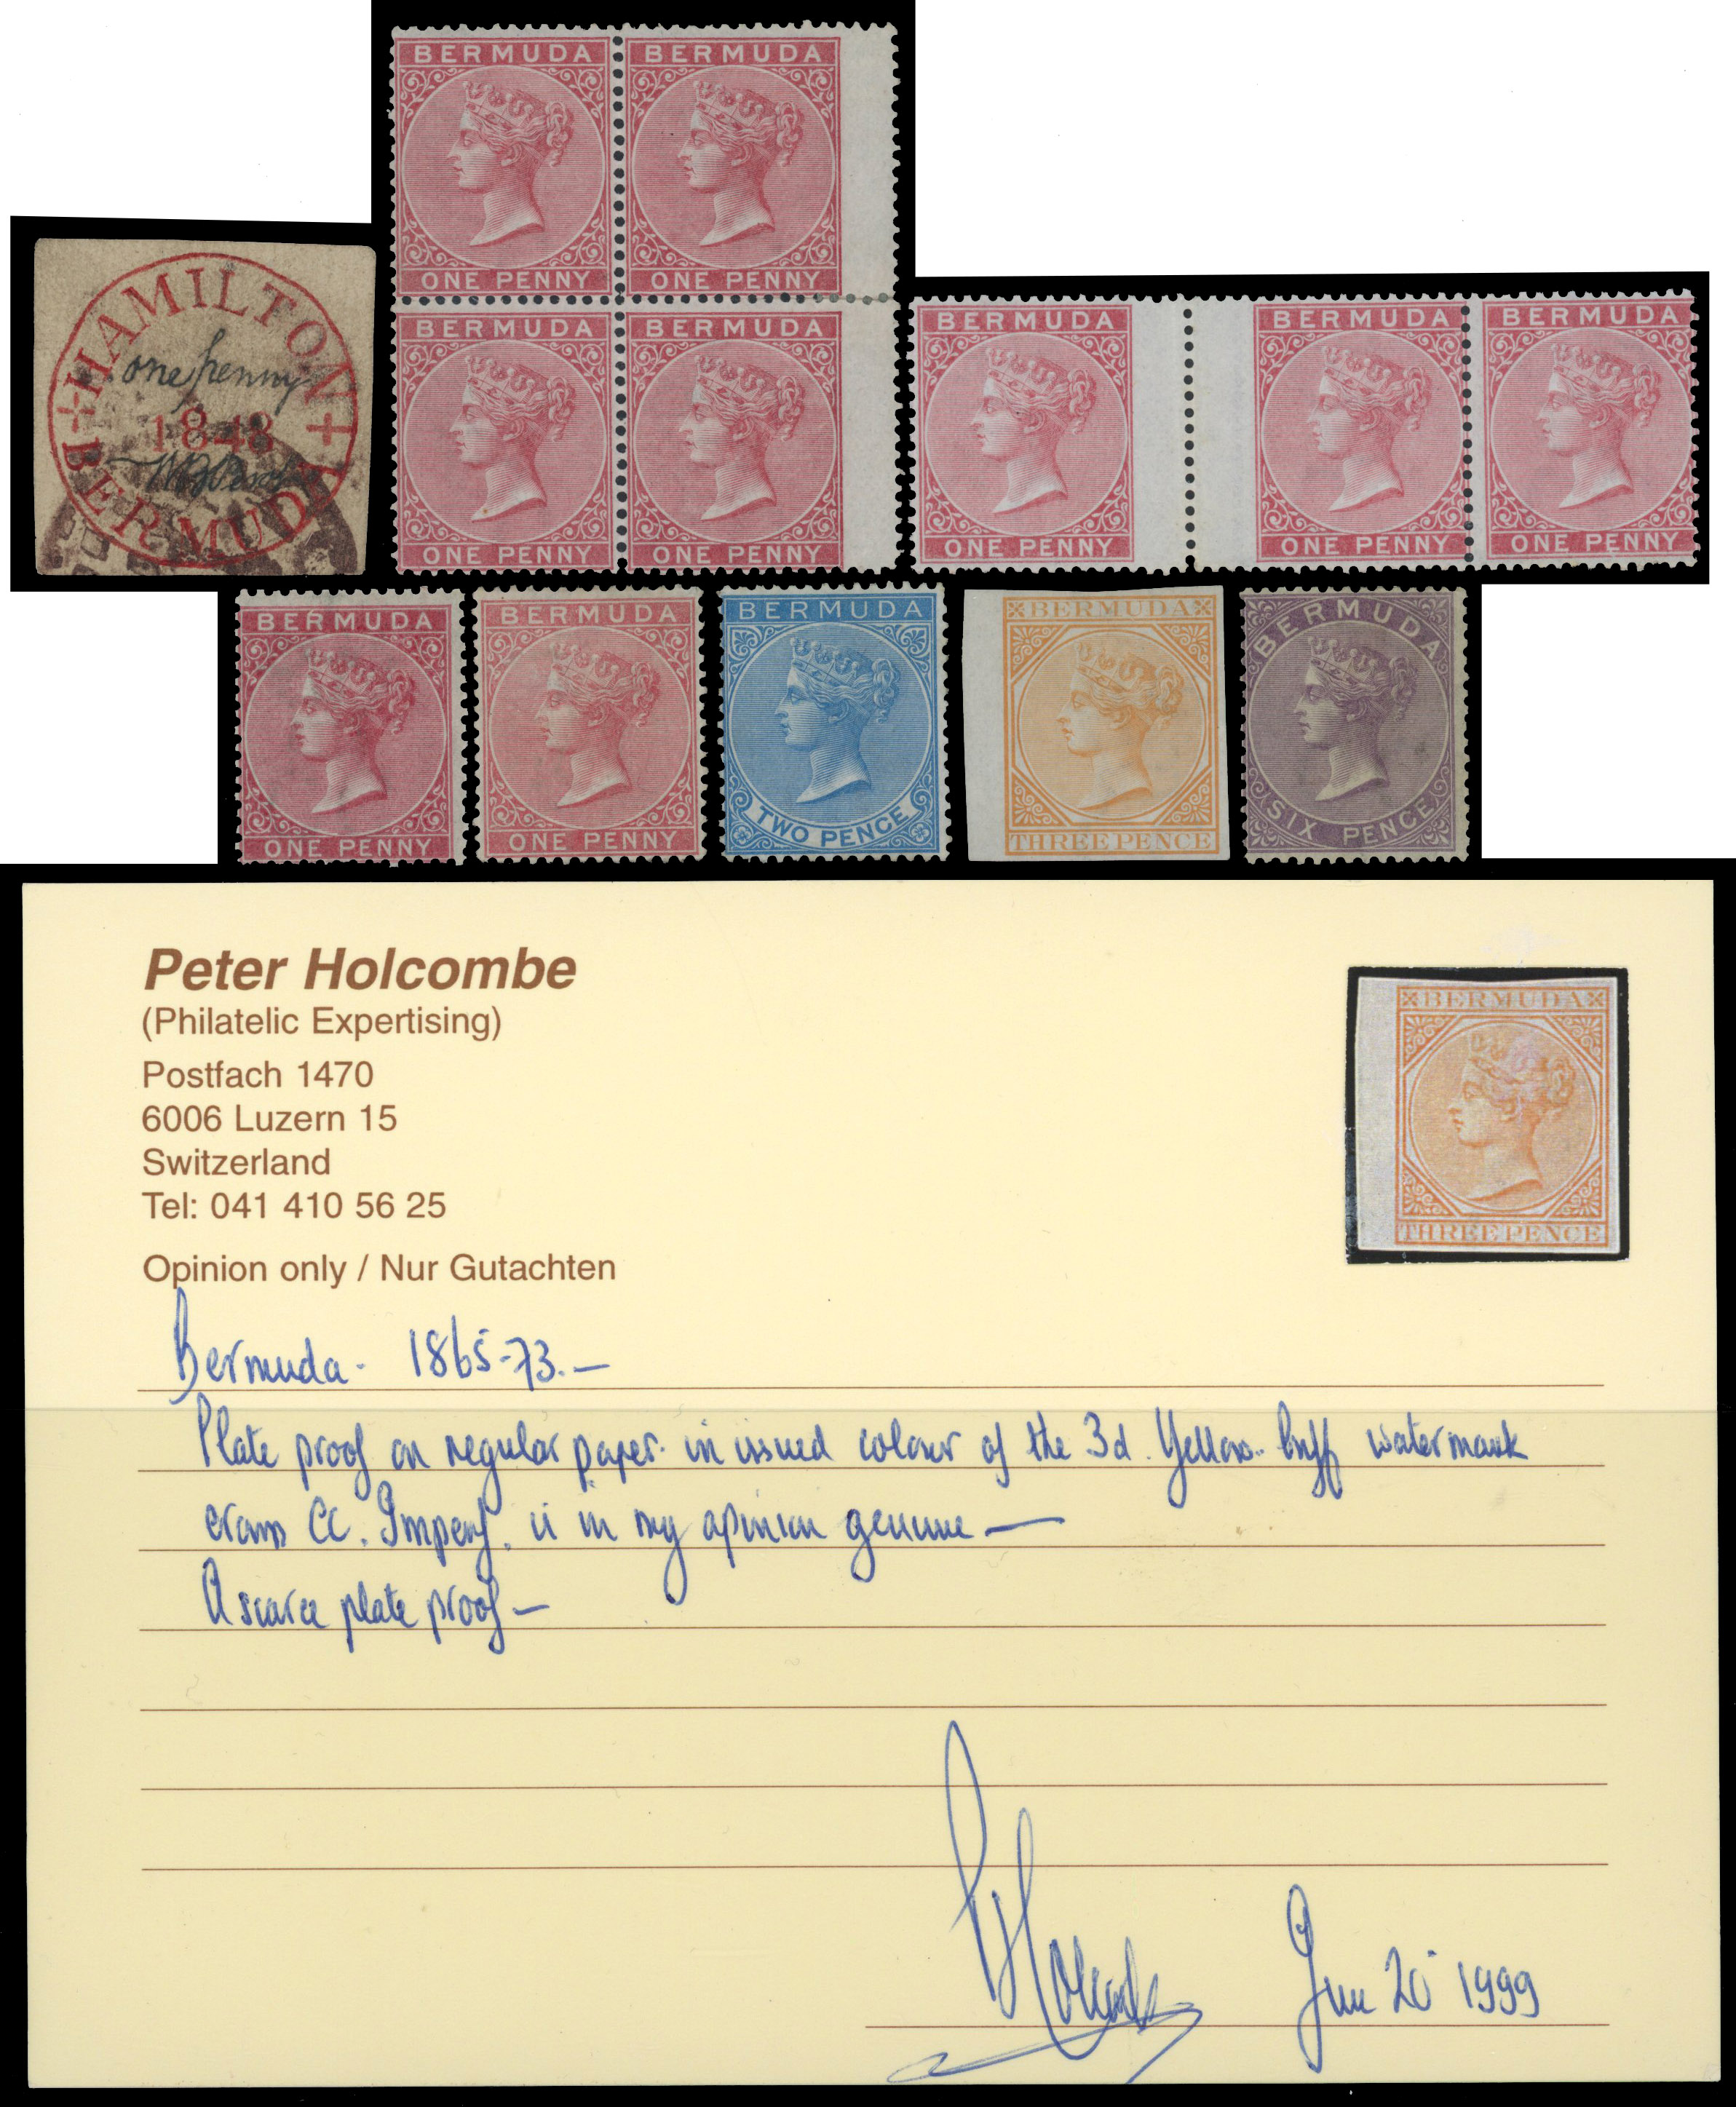 HAMILTON
one penny
1848
BERMUDA
BERMUDA
ONE PENNY
BERMUDA
ONE PENNY
BERMUDA
ONE PENNY
BERMUDA
ONE PENNY
BERMUDA
ONE PENNY
BERMUDA
ONE PENNY
BERMUDA
ONE PENNY
BERMUDA
ONE PENNY
BERMUDA
ONE PENNY
BERMUDA
TWO PENCE
BERMUDA
THREE PENCE
BERMUDA
SIX PENCE
Peter Holcombe
(Philatelic Expertising)
Postfach 1470
6006 Luzern 15
Switzerland
Tel: 041 410 56 25
Opinion only / Nur Gutachten
BERMUDA
THREE PENCE
Bermuda - 1865-73.—
Plate proof on regular paper in issued colour of the 3d. Yellow-buff watermark
crown CC. Imperf. is in my opinion genuine —
A scarce plate proof —
PHolcombe June 20 1999